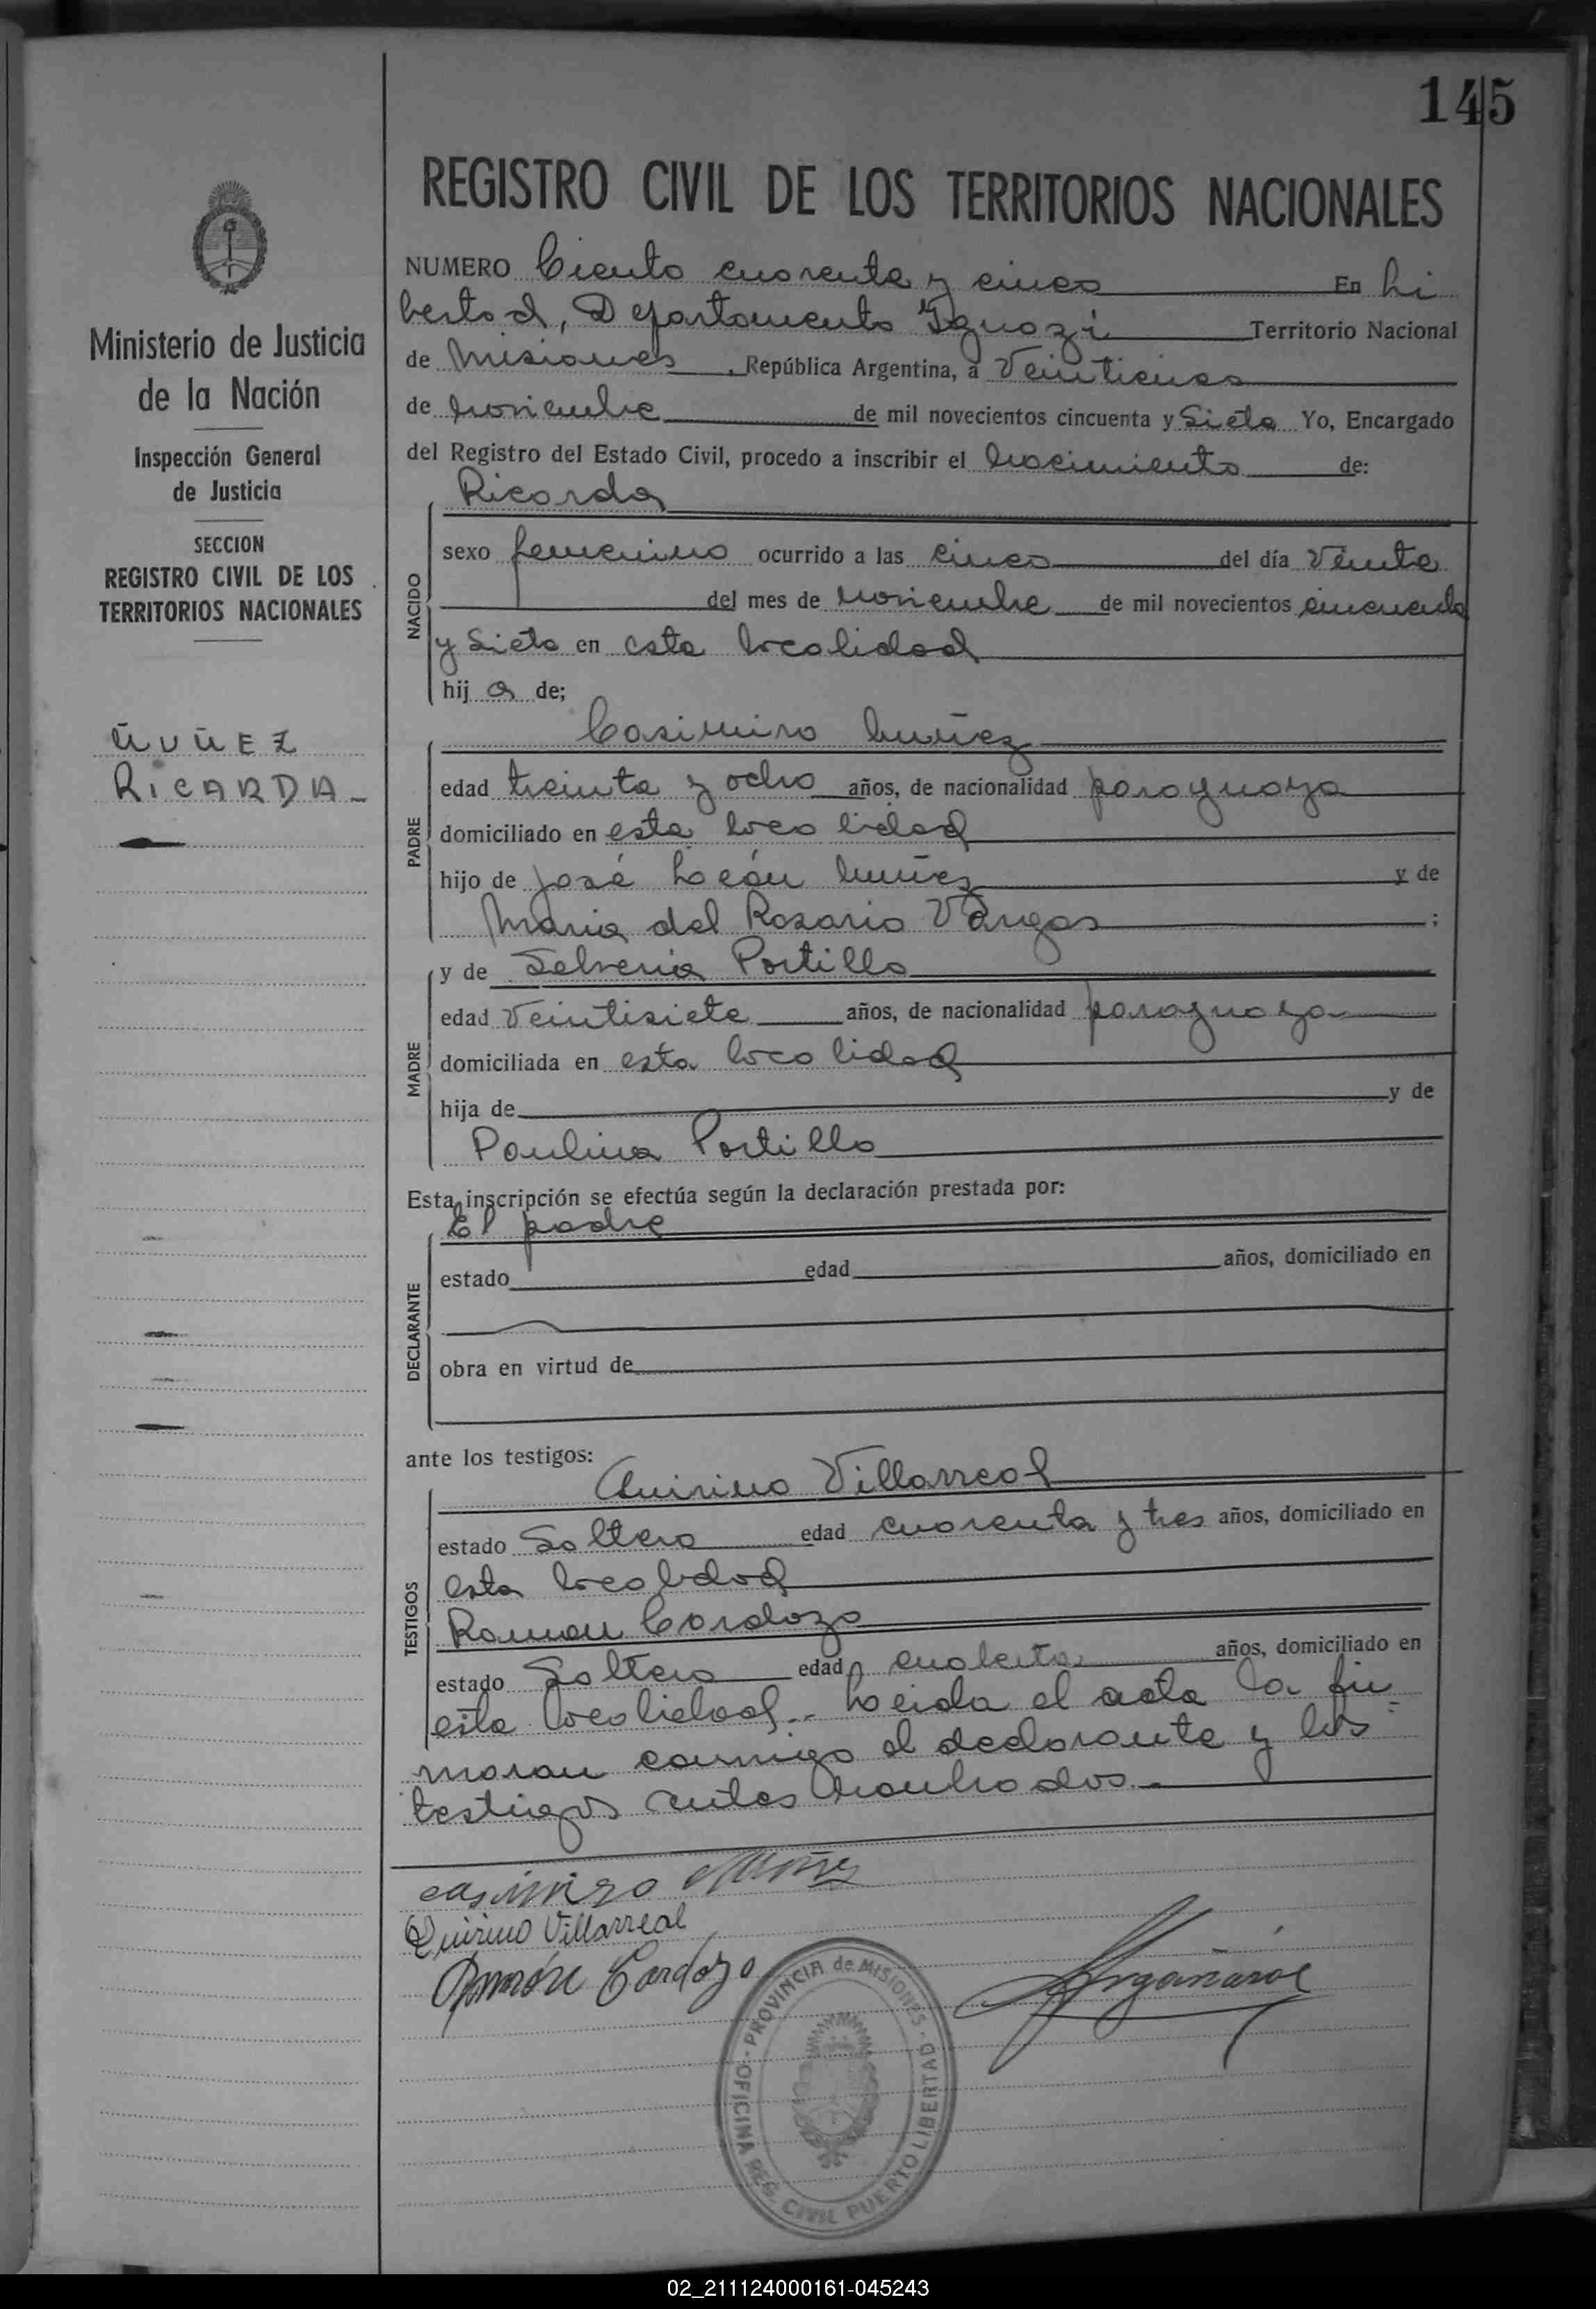 145
REGISTRO CIVIL DE LOS TERRITORIOS NACIONALES
Ministerio de Justicia
de la Nación
Inspección General
de Justicia
SECCION
REGISTRO CIVIL DE LOS
TERRITORIOS NACIONALES
ÑUÑEZ
RICARDA
NUMERO Ciento cuarenta y cinco En Li
bertad, Departamento Iguazú Territorio Nacional
de Misiones, República Argentina, a Veinticinco
de noviembre de mil novecientos cincuenta y Siete Yo, Encargado
del Registro del Estado Civil, procedo a inscribir el nacimiento de:
Ricarda
NACIDO
sexo femenino ocurrido a las cinco del día Veinte
del mes de noviembre de mil novecientos cincuenta
y Siete en esta localidad
hij a de;
Casimiro Nuñez
PADRE
edad treinta y ocho años, de nacionalidad paraguaya
domiciliado en esta localidad
hijo de José León Nuñez y de
Maria del Rosario Vargas ;
y de Selvenia Portillo
MADRE
edad Veintisiete años, de nacionalidad paraguaya
domiciliada en esta localidad
hija de y de
Paulina Portillo
Esta inscripción se efectúa según la declaración prestada por:
El padre
DECLARANTE
estado edad años, domiciliado en
obra en virtud de
ante los testigos:
Quirino Villarreal
TESTIGOS
estado Soltero edad cuarenta y tres años, domiciliado en
esta localidad
Ramon Cardozo
estado Soltero edad cuarenta años, domiciliado en
esta localidad.. Leida el acta la fir-
maran conmigo el declarante y los
testigos antes nombrados.
casimiro Nuñez
Quirino Villarreal
Ramón Cardozo
OFICINA REG. CIVIL PUERTO LIBERTAD - PROVINCIA de MISIONES
02_211124000161-045243